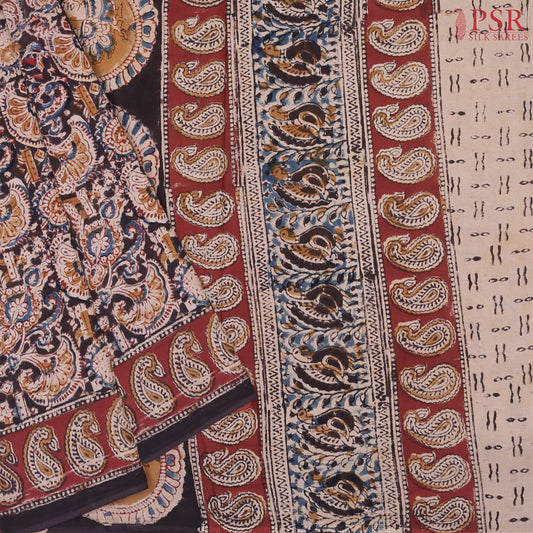 PSR
SILK SAREES